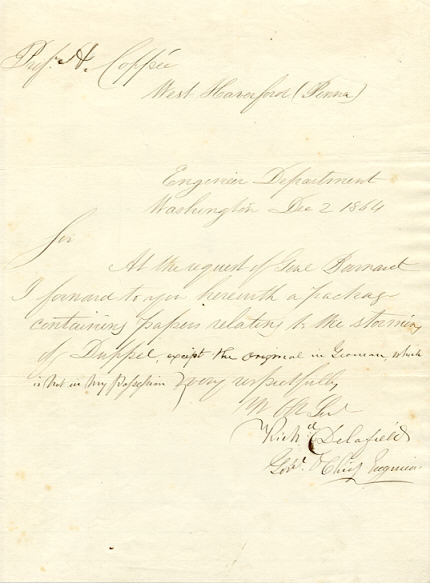 Prof. H. Coppée
West Haverford (Penna)
Engineer Department
Washington Dec 2 1864
Sir
At the request of Genl Barnard
I forward to you herewith a package
containing papers relating to the storming
of Duppel, except the original in German, which
is not in my possession very respectfully
Yr Obt Servt
Richd Delafield
Genl & Chief Engineer